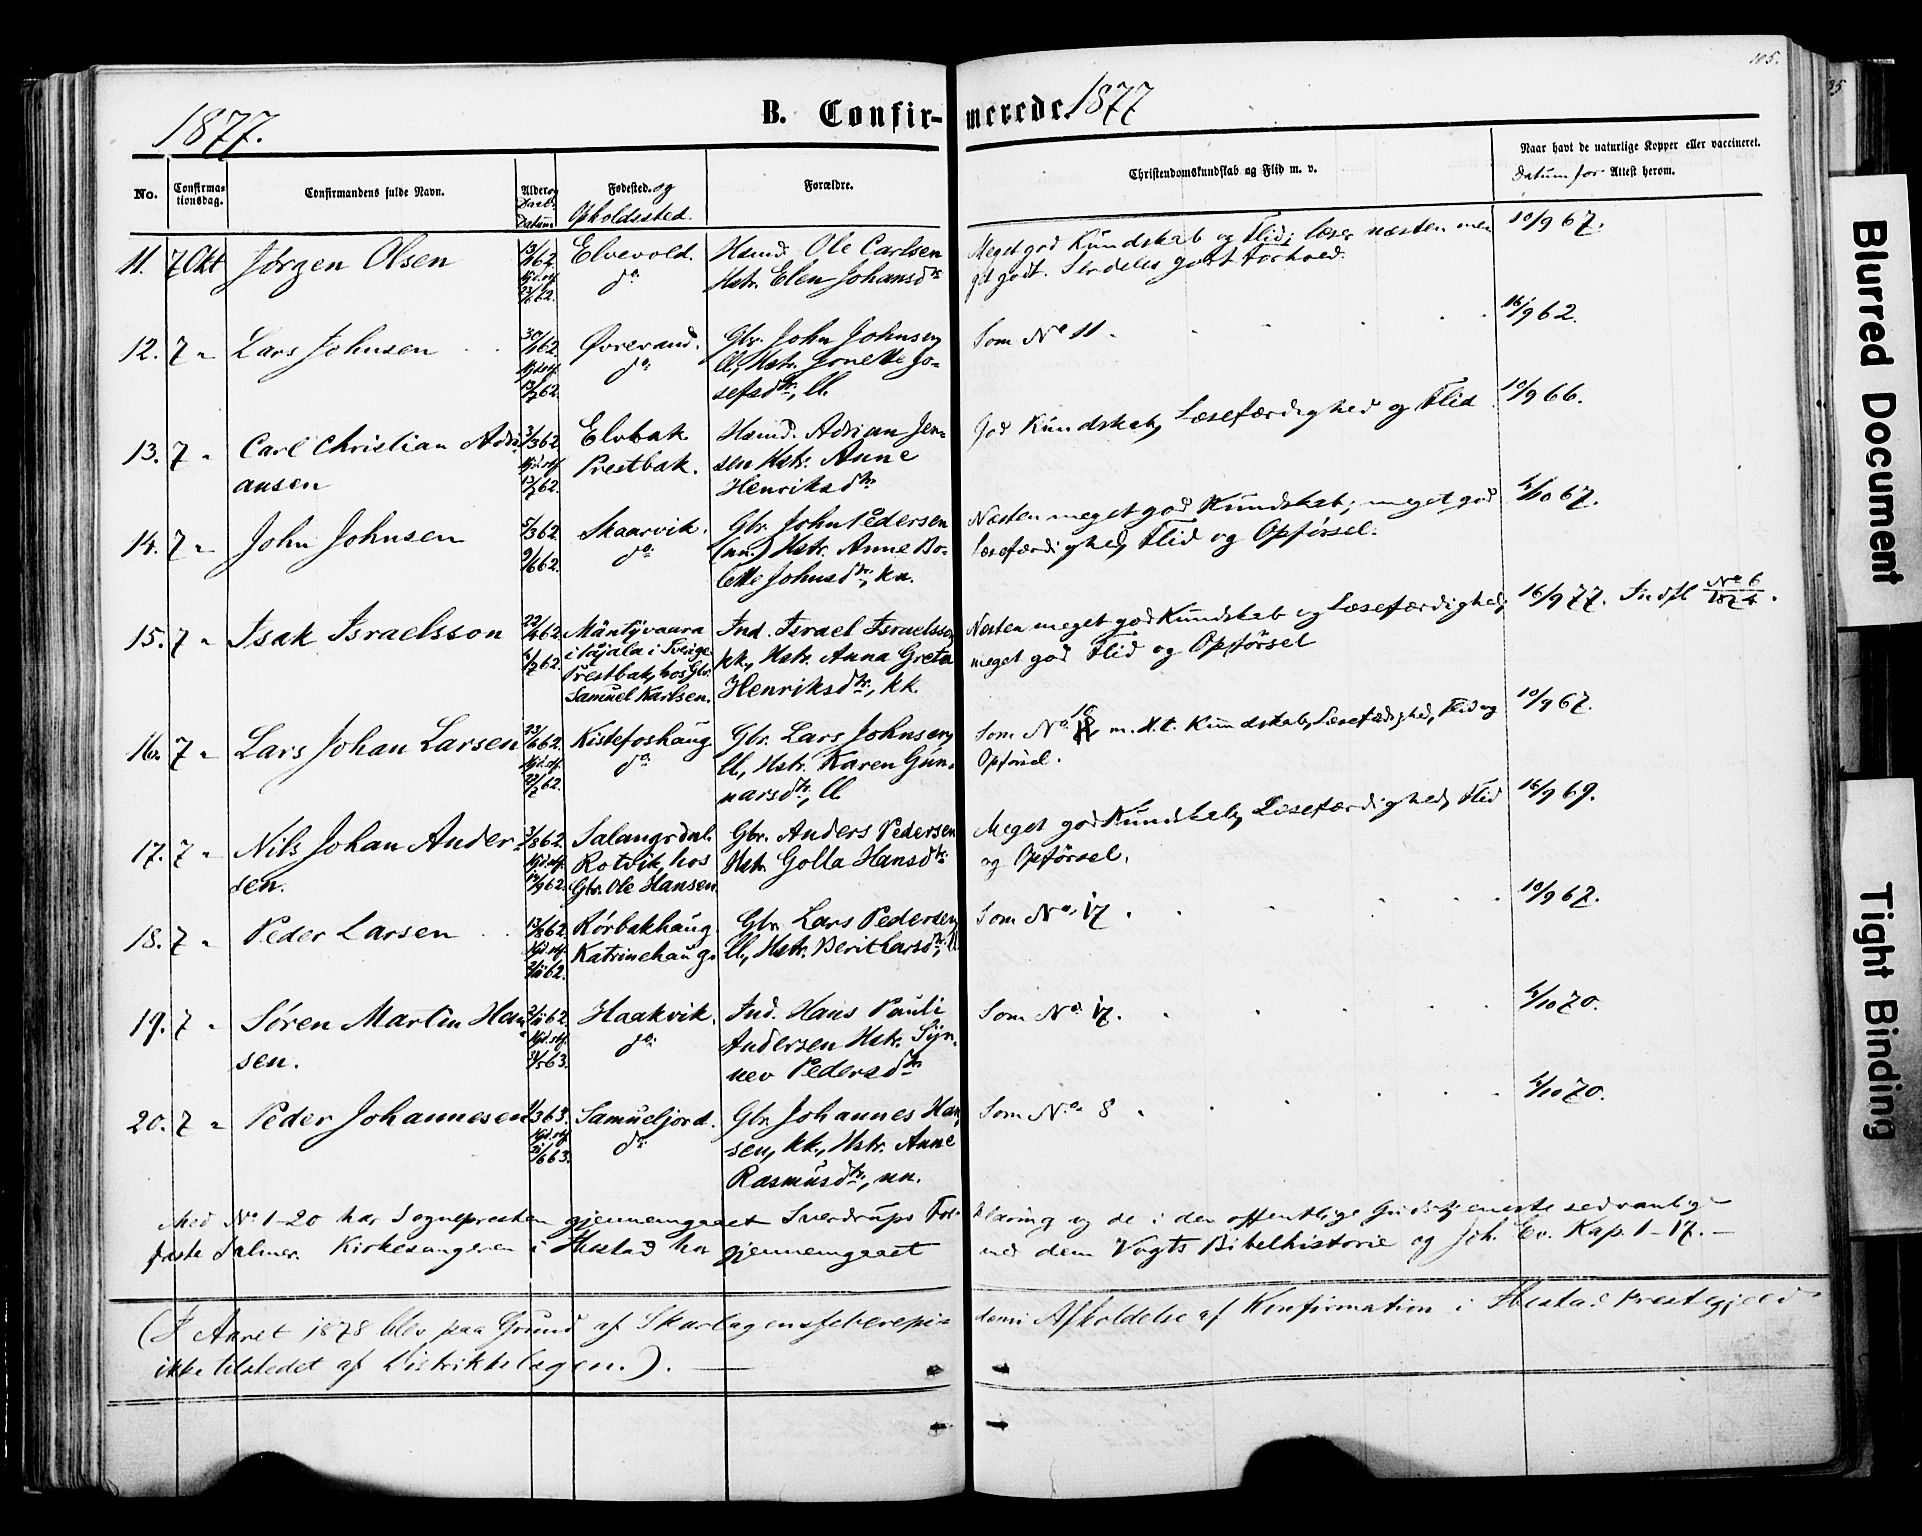 105.
1877.
B. Confir-merede. 1877
No.
Confirma-
tionsdag.
Confirmandens fulde Navn.
Alder og
Daabs
Datum
Fødested. og
Opholdssted.
Forældre.
Christendomskundskab og Flid m. v.
Naar havt de naturlige Kopper eller vaccineret.
Datum for Attest herom.
11. 7 Okt Jørgen Olsen
Elvevold.
do
Hsmd. Ole Carlsen
Hstr. Elen Johansdtr
Meget god Kundskab og Flid; læser næsten me-
get godt. Serdeles godt Forhold.
10/9 67.
12. 7 " Lars Johnsen
30/1 62
13/7 62.
Øvrevand.
do
Gbr. John Johnsen,
ll, Hstr. Jonette Jo-
sefsdtr, ll.
Som No 11.
16/9 62.
13. 7 " Carl Christian Adri-
ansen
3/3 62
13/7 62.
Elvbak
Prestbak.
Hsmd. Adrian Jen-
sen Hstr. Anne
Henriksdtr
God Kundskab, Læsefærdighed og Flid
10/9 66.
14. 7 " John Johnsen
5/3 62
9/6 62.
Skaarvik.
do
Gbr. John Pedersen
(nn.) Hstr. Anne Bo-
lette Johnsdtr, kn.
Næsten meget god Kundskab; meget god
Læsefærdighed, Flid og Opførsel.
4/10 67.
15. 7 " Isak Israelsson
22/4 62
Mäntyvaara
i Pajala i Sverige
Prestbak, hos Gbr.
Samuel Karlsen.
Ind. Israel Israelsson
kk, Hstr. Anna Greta
Henriksdtr, kk.
Næsten meget god Kundskab og Læsefærdighed;
meget god Flid og Opførsel
16/9 77. Indfl No 6
16. 7 " Lars Johan Larsen
23/6 62
Kistefoshaug
do
Gbr. Lars Johnsen,
ll, Hstr. Karen Gun-
narsdtr, ll
Som No m. H. t. Kundskab, Læsefærdighed, Flid og
Opførsel.
10/9 67.
17. 7 " Nils Johan Ander-
sen.
3/8 62
14/9 62
Salangsdal.
Rotvik, hos
Gbr. Ole Hansen
Gbr. Anders Pedersen
Hstr. Golla Hansdtr
Meget god Kundskab, Læsefærdighed, Flid
og Opførsel.
16/9 69.
18. 7 " Peder Larsen
13/8 62
2/11 62.
Rørbakhaug.
Katrinehaug.
Gbr. Lars Pedersen,
ll, Hstr. Berit Larsdtr, ll
Som No. 17.
10/9 67.
19. 7 " Søren Martin Han-
sen.
2/11 62
31/5 63.
Haakvik.
do
Ind. Hans Pauli
Andersen Hstr. Syn-
nev Pedersdtr
Som No. 17.
4/10 70.
20. 7 " Peder Johannesen
1/3 63
21/6 63.
Samueljord.
do
Gbr. Johannes Han-
sen, kk., Hstr. Anne
Rasmusdtr, nn.
Som No. 8
4/10 70.
Med No 1-20 har Sognepresten gjennemgaaet Sverdrups For-klaring og de i den offentlige Gudstjeneste sedvanlig-
ste Salmer. Kirkesangeren i Ibestad har gjennemgaaet med dem Vogts Bibelhistorie og Joh. Ev. Kap. 1-17. -
(I Aaret 1878 blev paa Grund af Skarlagensfeberepi-demi Afholdelse af Konfirmation i Ibestad Prestegjeld
ikke tilstedet af Distriktslægen.). -
Blurred Document
Tight Binding